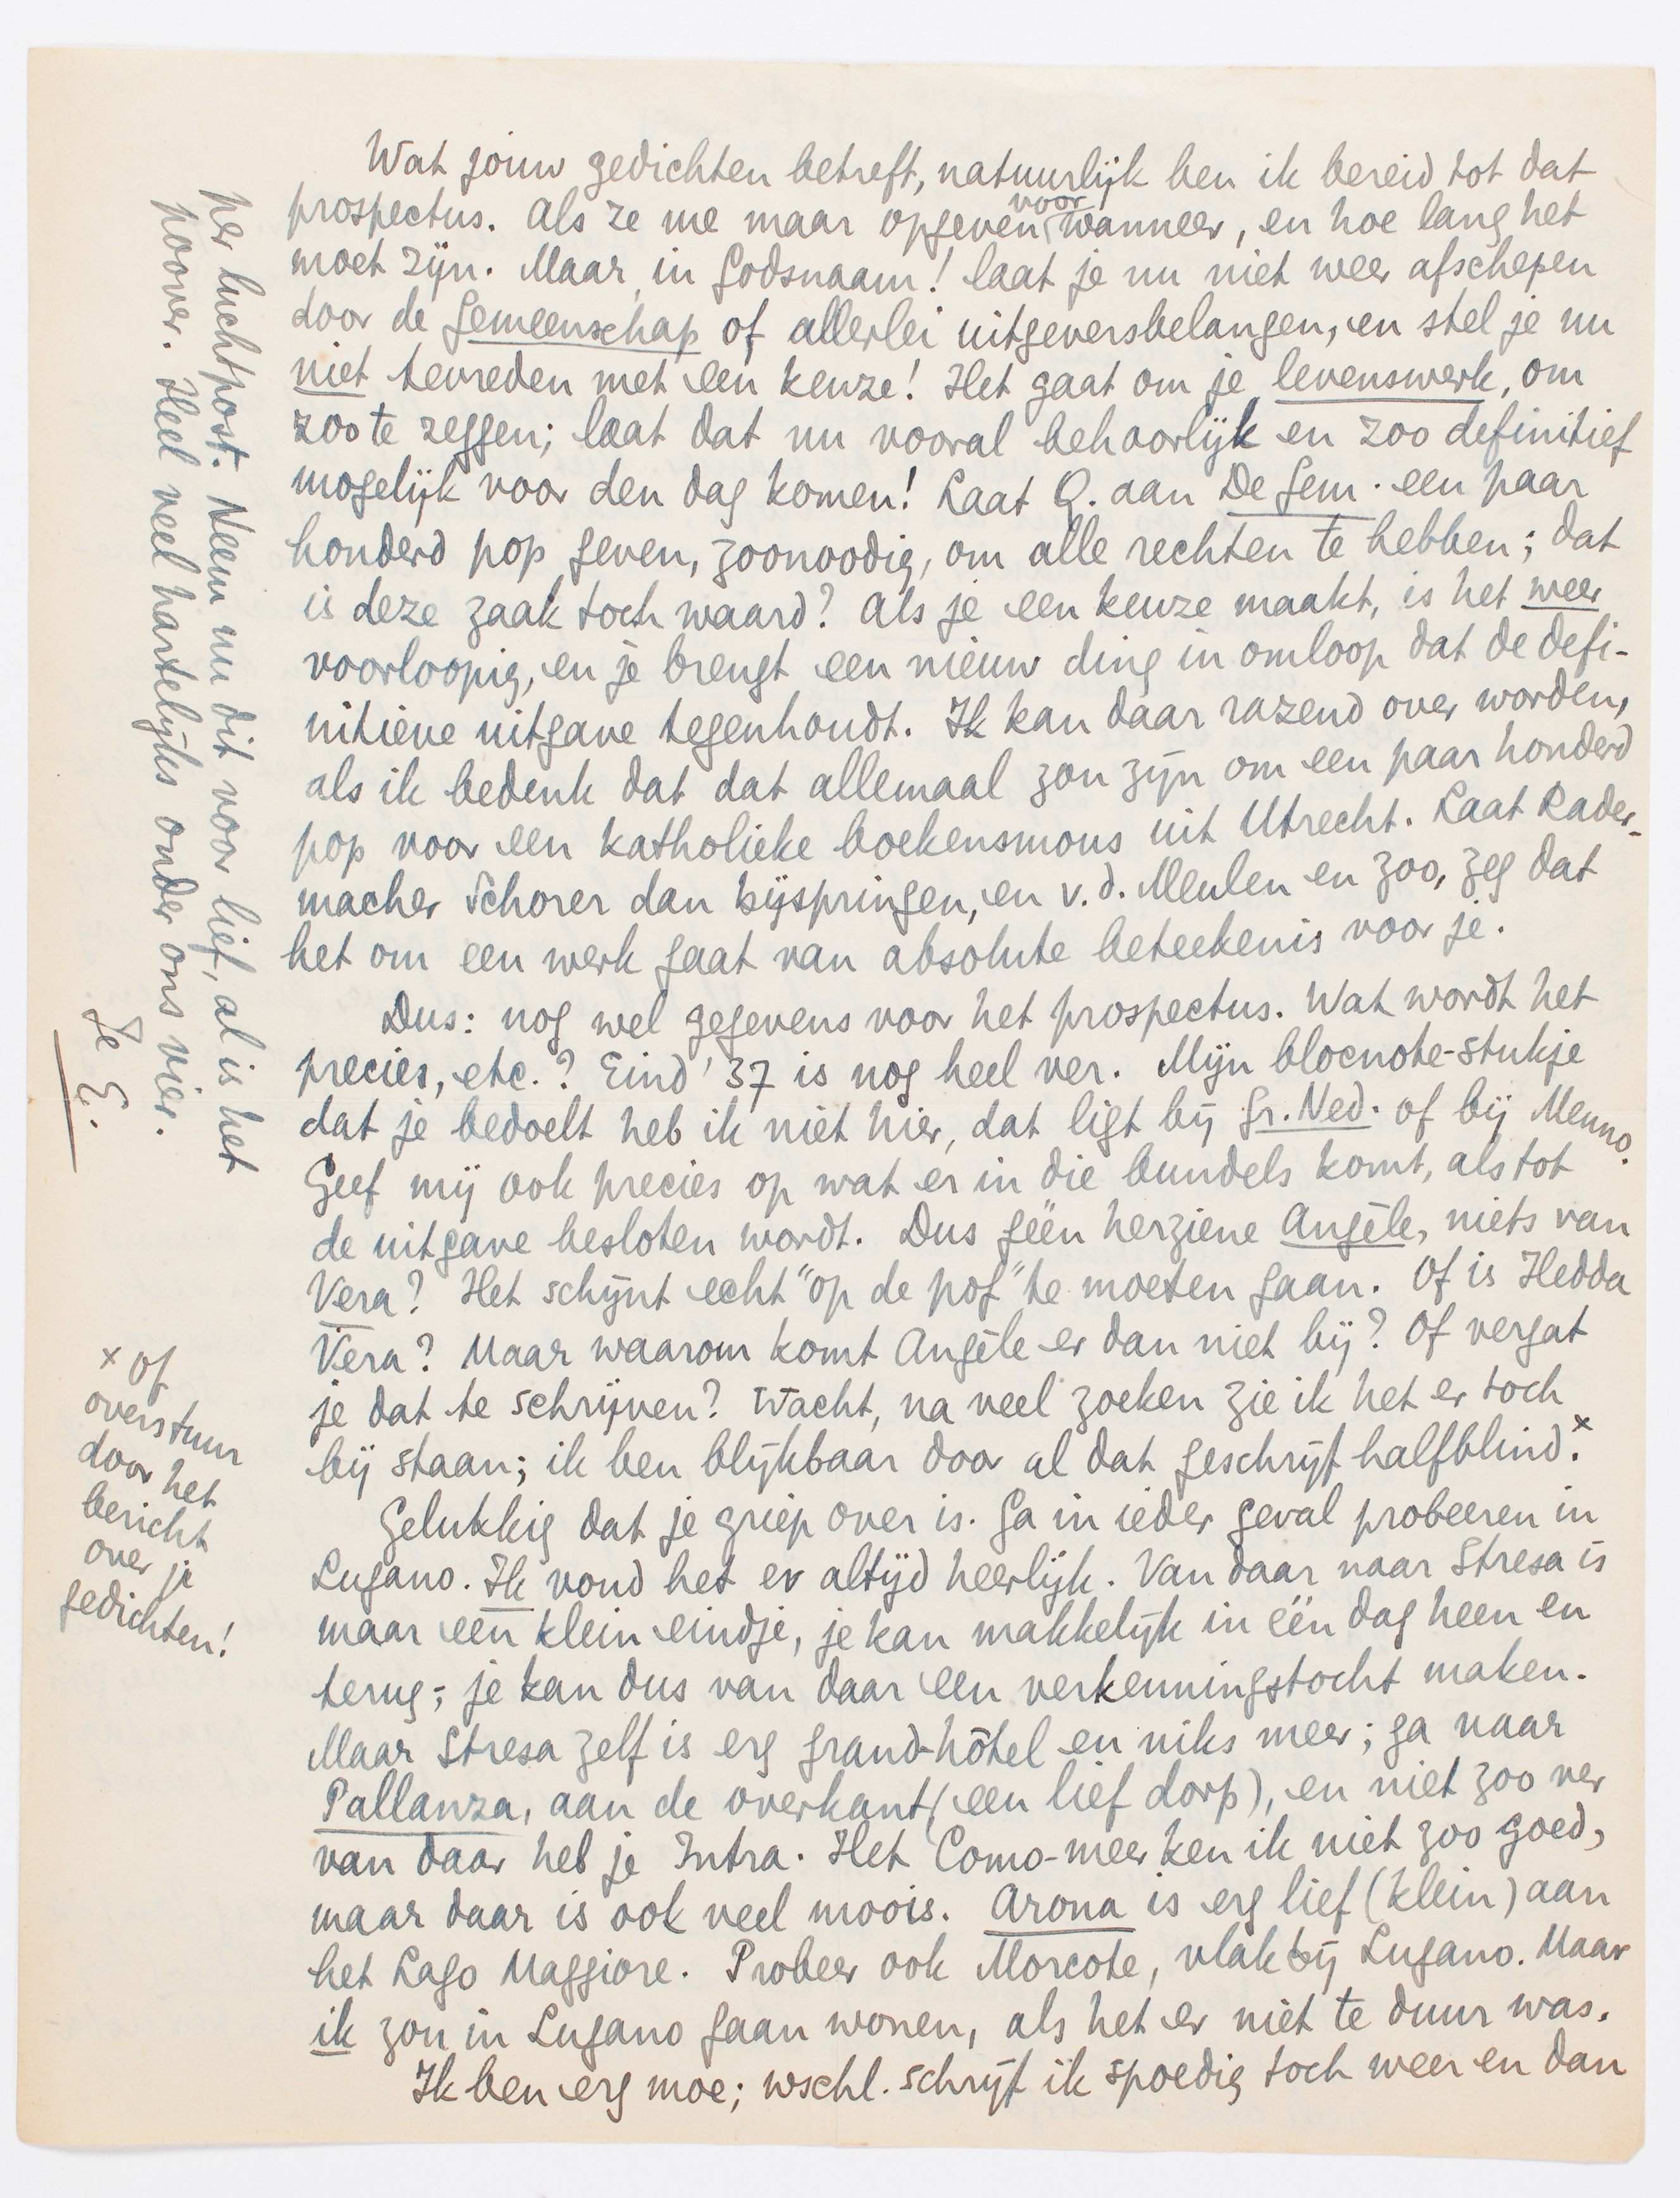 Wat jouw gedichten betreft, natuurlijk ben ik bereid tot dat
prospectus. Als ze me maar opgeven voor wanneer, en hoe lang het
moet zijn. Maar, in Godsnaam! laat je nu niet weer afschepen
door de Gemeenschap of allerlei uitgeversbelangen, en stel je nu
niet tevreden met een keuze! Het gaat om je levenswerk, om
zoo te zeggen; laat dat nu vooral behoorlijk en zoo definitief
mogelijk voor den dag komen! Laat Q. aan De Gem. een paar
honderd pop geven, zoonoodig, om alle rechten te hebben; dat
is deze zaak toch waard? Als je een keuze maakt, is het weer
voorloopig, en je brengt een nieuw ding in omloop dat de defi-
nitieve uitgave tegenhoudt. Ik kan daar razend over worden,
als ik bedenk dat dat allemaal zou zijn om een paar honderd
pop voor een katholieke boekensmous uit Utrecht. Laat Rader-
macher Schorer dan bijspringen, en v.d. Meulen en zoo, zeg dat
het om een werk gaat van absolute beteekenis voor je.
Dus: nog wel gegevens voor het prospectus. Wat wordt het
precies, etc.? Eind '37 is nog heel ver. Mijn blocnote-stukje
dat je bedoelt heb ik niet hier, dat ligt bij Gr. Ned. of bij Menno.
Geef mij ook precies op wat er in die bundels komt, als tot
de uitgave besloten wordt. Dus géén herziene Angèle, niets van
Vera? Het schijnt echt "op de pof" te moeten gaan. Of is Hedda
Vera? Maar waarom komt Angèle er dan niet bij? Of vergat
je dat te schrijven? Wacht, na veel zoeken zie ik het er toch
bij staan; ik ben blijkbaar door al dat geschrijf halfblind.x
Gelukkig dat je griep over is. Ga in ieder geval probeeren in
Lugano. Ik vond het er altijd heerlijk. Van daar naar Stresa is
maar een klein eindje, je kan makkelijk in één dag heen en
terug; je kan dus van daar een verkenningstocht maken.
Maar Stresa zelf is erg grand-hôtel en niks meer; ga naar
Pallanza, aan de overkant (een lief dorp), en niet zoo ver
van daar heb je Intra. Het Como-meer ken ik niet zoo goed,
maar daar is ook veel moois. Arona is erg lief (klein) aan
het Lago Maggiore. Probeer ook Morcote, vlak bij Lugano. Maar
ik zou in Lugano gaan wonen, als het er niet te duur was.
Ik ben erg moe; wschl. schrijf ik spoedig toch weer en dan
per luchtpost. Neem nu dit voor lief, al is het
poover. Heel veel hartelijks onder ons vier.
Je E.
x of
overstuur
door het
bericht
over je
gedichten!